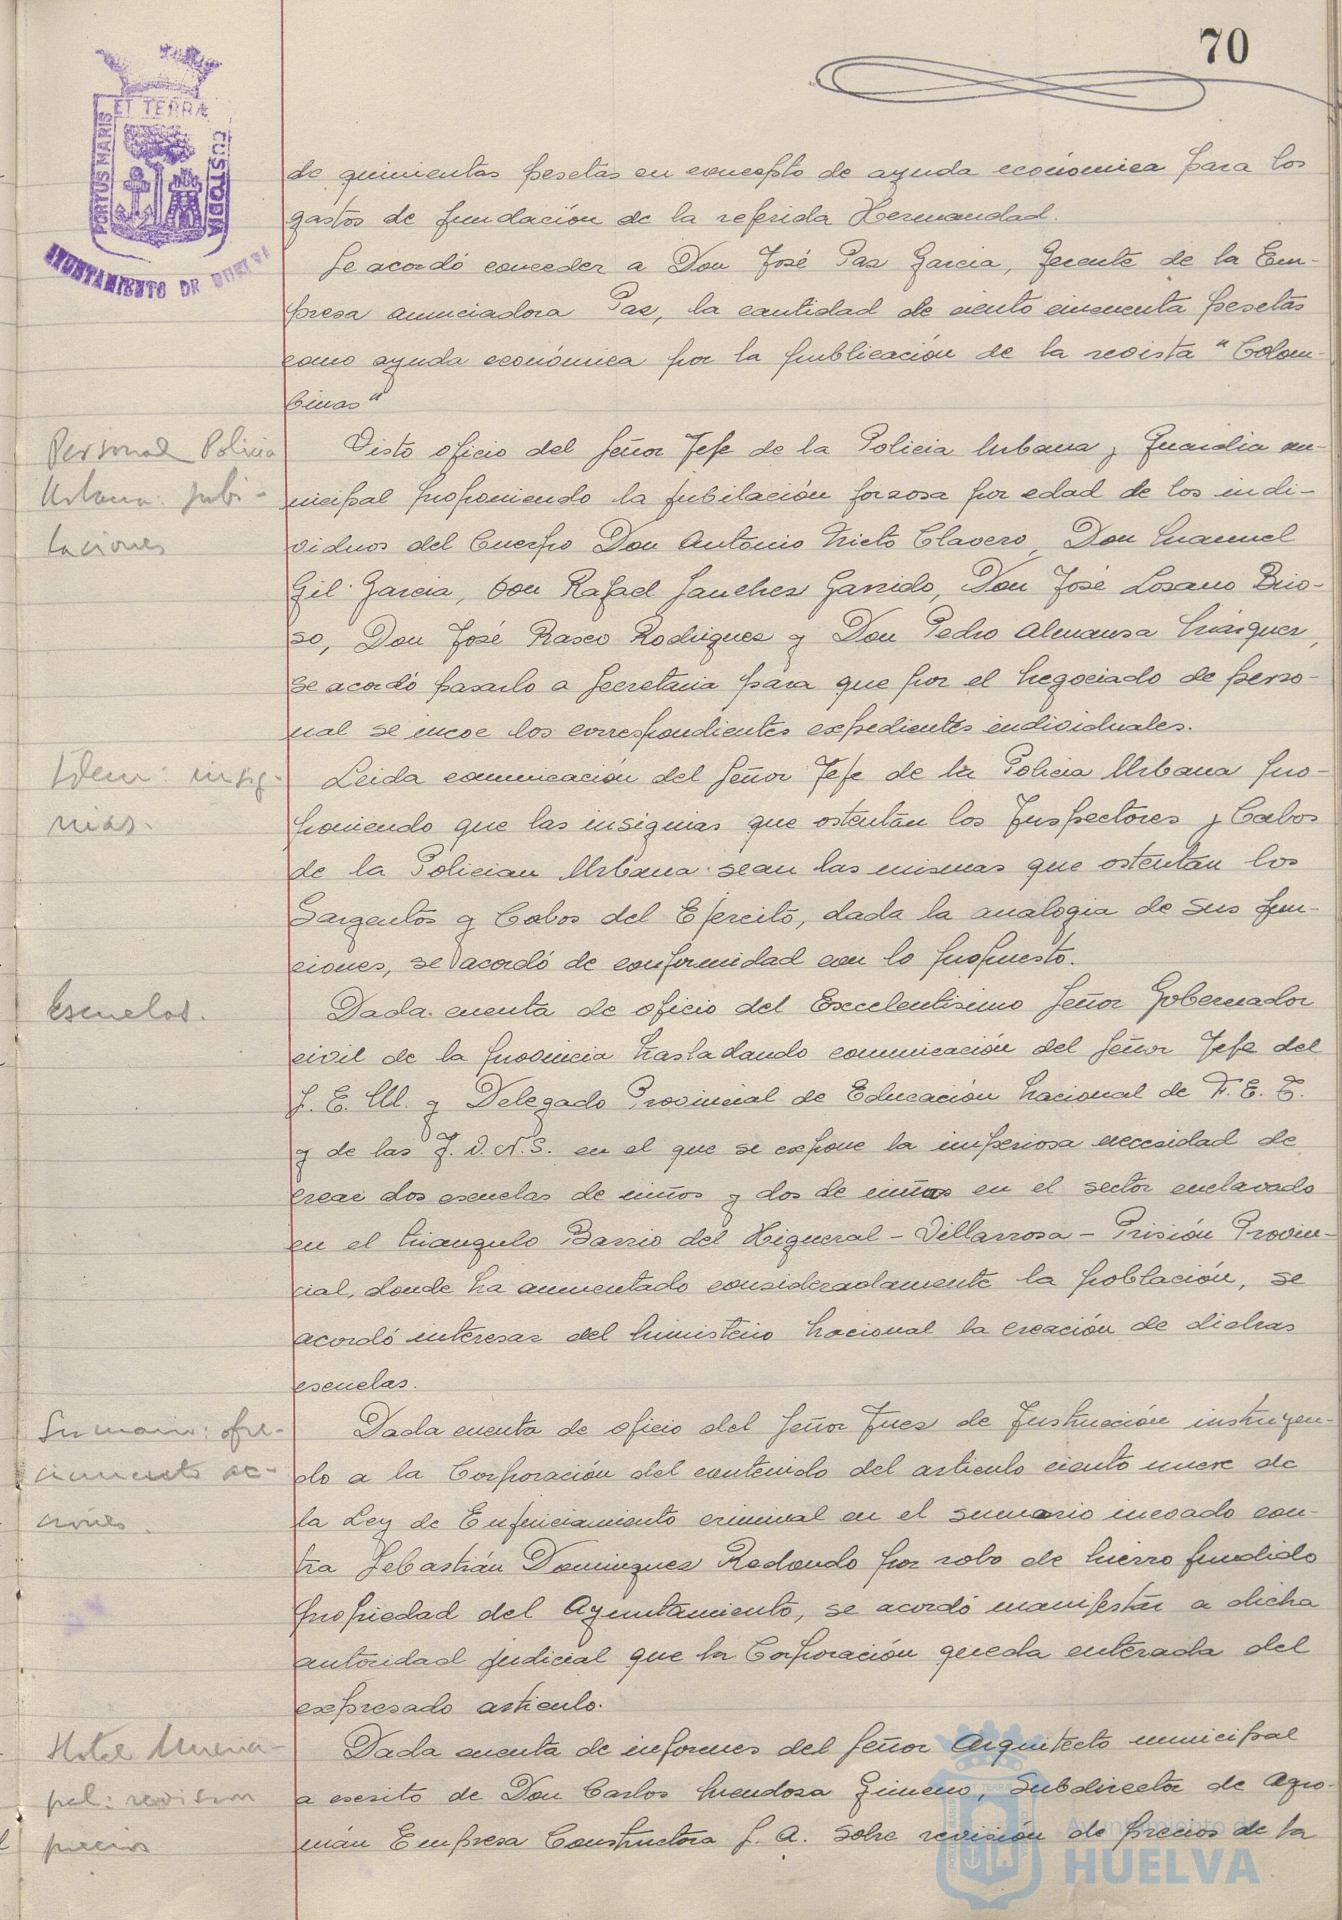 70
ET TERRA
PORTUS MARIS
CUSTODIA
AYUNTAMIENTO DE HUELVA
de quinientas pesetas en concepto de ayuda económica para los
gastos de fundación de la referida Hermandad.
Se acordó conceder a Don José Paz Garcia, Gerente de la Em-
presa anunciadora Paz, la cantidad de ciento cincuenta pesetas
como ayuda económica por la publicación de la revista "Colom-
binas"
Personal Policia
Urbana: jubi-
laciones
Visto oficio del Señor Jefe de la Policia Urbana y Guardia mu-
nicipal proponiendo la jubilación forzosa por edad de los indi-
viduos del Cuerpo Don Antonio Nieto Clavero, Don Manuel
Gil Garcia, Don Rafael Sanchez Garrido, Don José Lozano Brio-
so, Don José Rasco Rodriguez y Don Pedro Almansa Márquez,
se acordó pasarlo a Secretaria para que por el Negociado de perso-
nal se incoe los correspondientes expedientes individuales.
Idem: insig-
nias.
Leida comunicación del Señor Jefe de la Policia Urbana pro-
poniendo que las insignias que ostentán los Inspectores y Cabos
de la Polician Urbana sean las mismas que ostentán los
Sargentos y Cabos del Ejercito, dada la analogia de sus fun-
ciones, se acordó de conformidad con lo propuesto.
Escuelas.
Dada cuenta de oficio del Excelentisimo Señor Gobernador
civil de la provincia trasladando comunicación del Señor Jefe del
S. E. M. y Delegado Provincial de Educación Nacional de F. E. T.
y de las J. O. N. S. en el que se expone la imperiosa necesidad de
crear dos escuelas de niños y dos de niñas en el sector enclavado
en el triangulo Barrio del Higueral - Villarrosa - Prisión Provin-
cial, donde ha aumentado consideradamente la población, se
acordó interesar del Ministerio Nacional la creación de dichas
escuelas.
Sumario: ofre-
cimiento ac-
ciones.
Dada cuenta de oficio del Señor Juez de Instrucción instruyen-
do a la Corporación del contenido del articulo ciento nueve de
la Ley de Enjuiciamiento criminal en el sumario incoado con-
tra Sebastián Dominguez Redondo por robo de hierro fundido
propiedad del Ayuntamiento, se acordó manifestar a dicha
autoridad judicial que la Corporación queda enterada del
expresado articulo.
Hotel Munici-
pal: revision
precios
Dada cuenta de informes del Señor Arquitecto municipal
a escrito de Don Carlos Mendoza Gimeno, Subdirector de Agro-
mán Empresa Constructora S. A. sobre revisión de precios de la
Ayuntamiento de
HUELVA